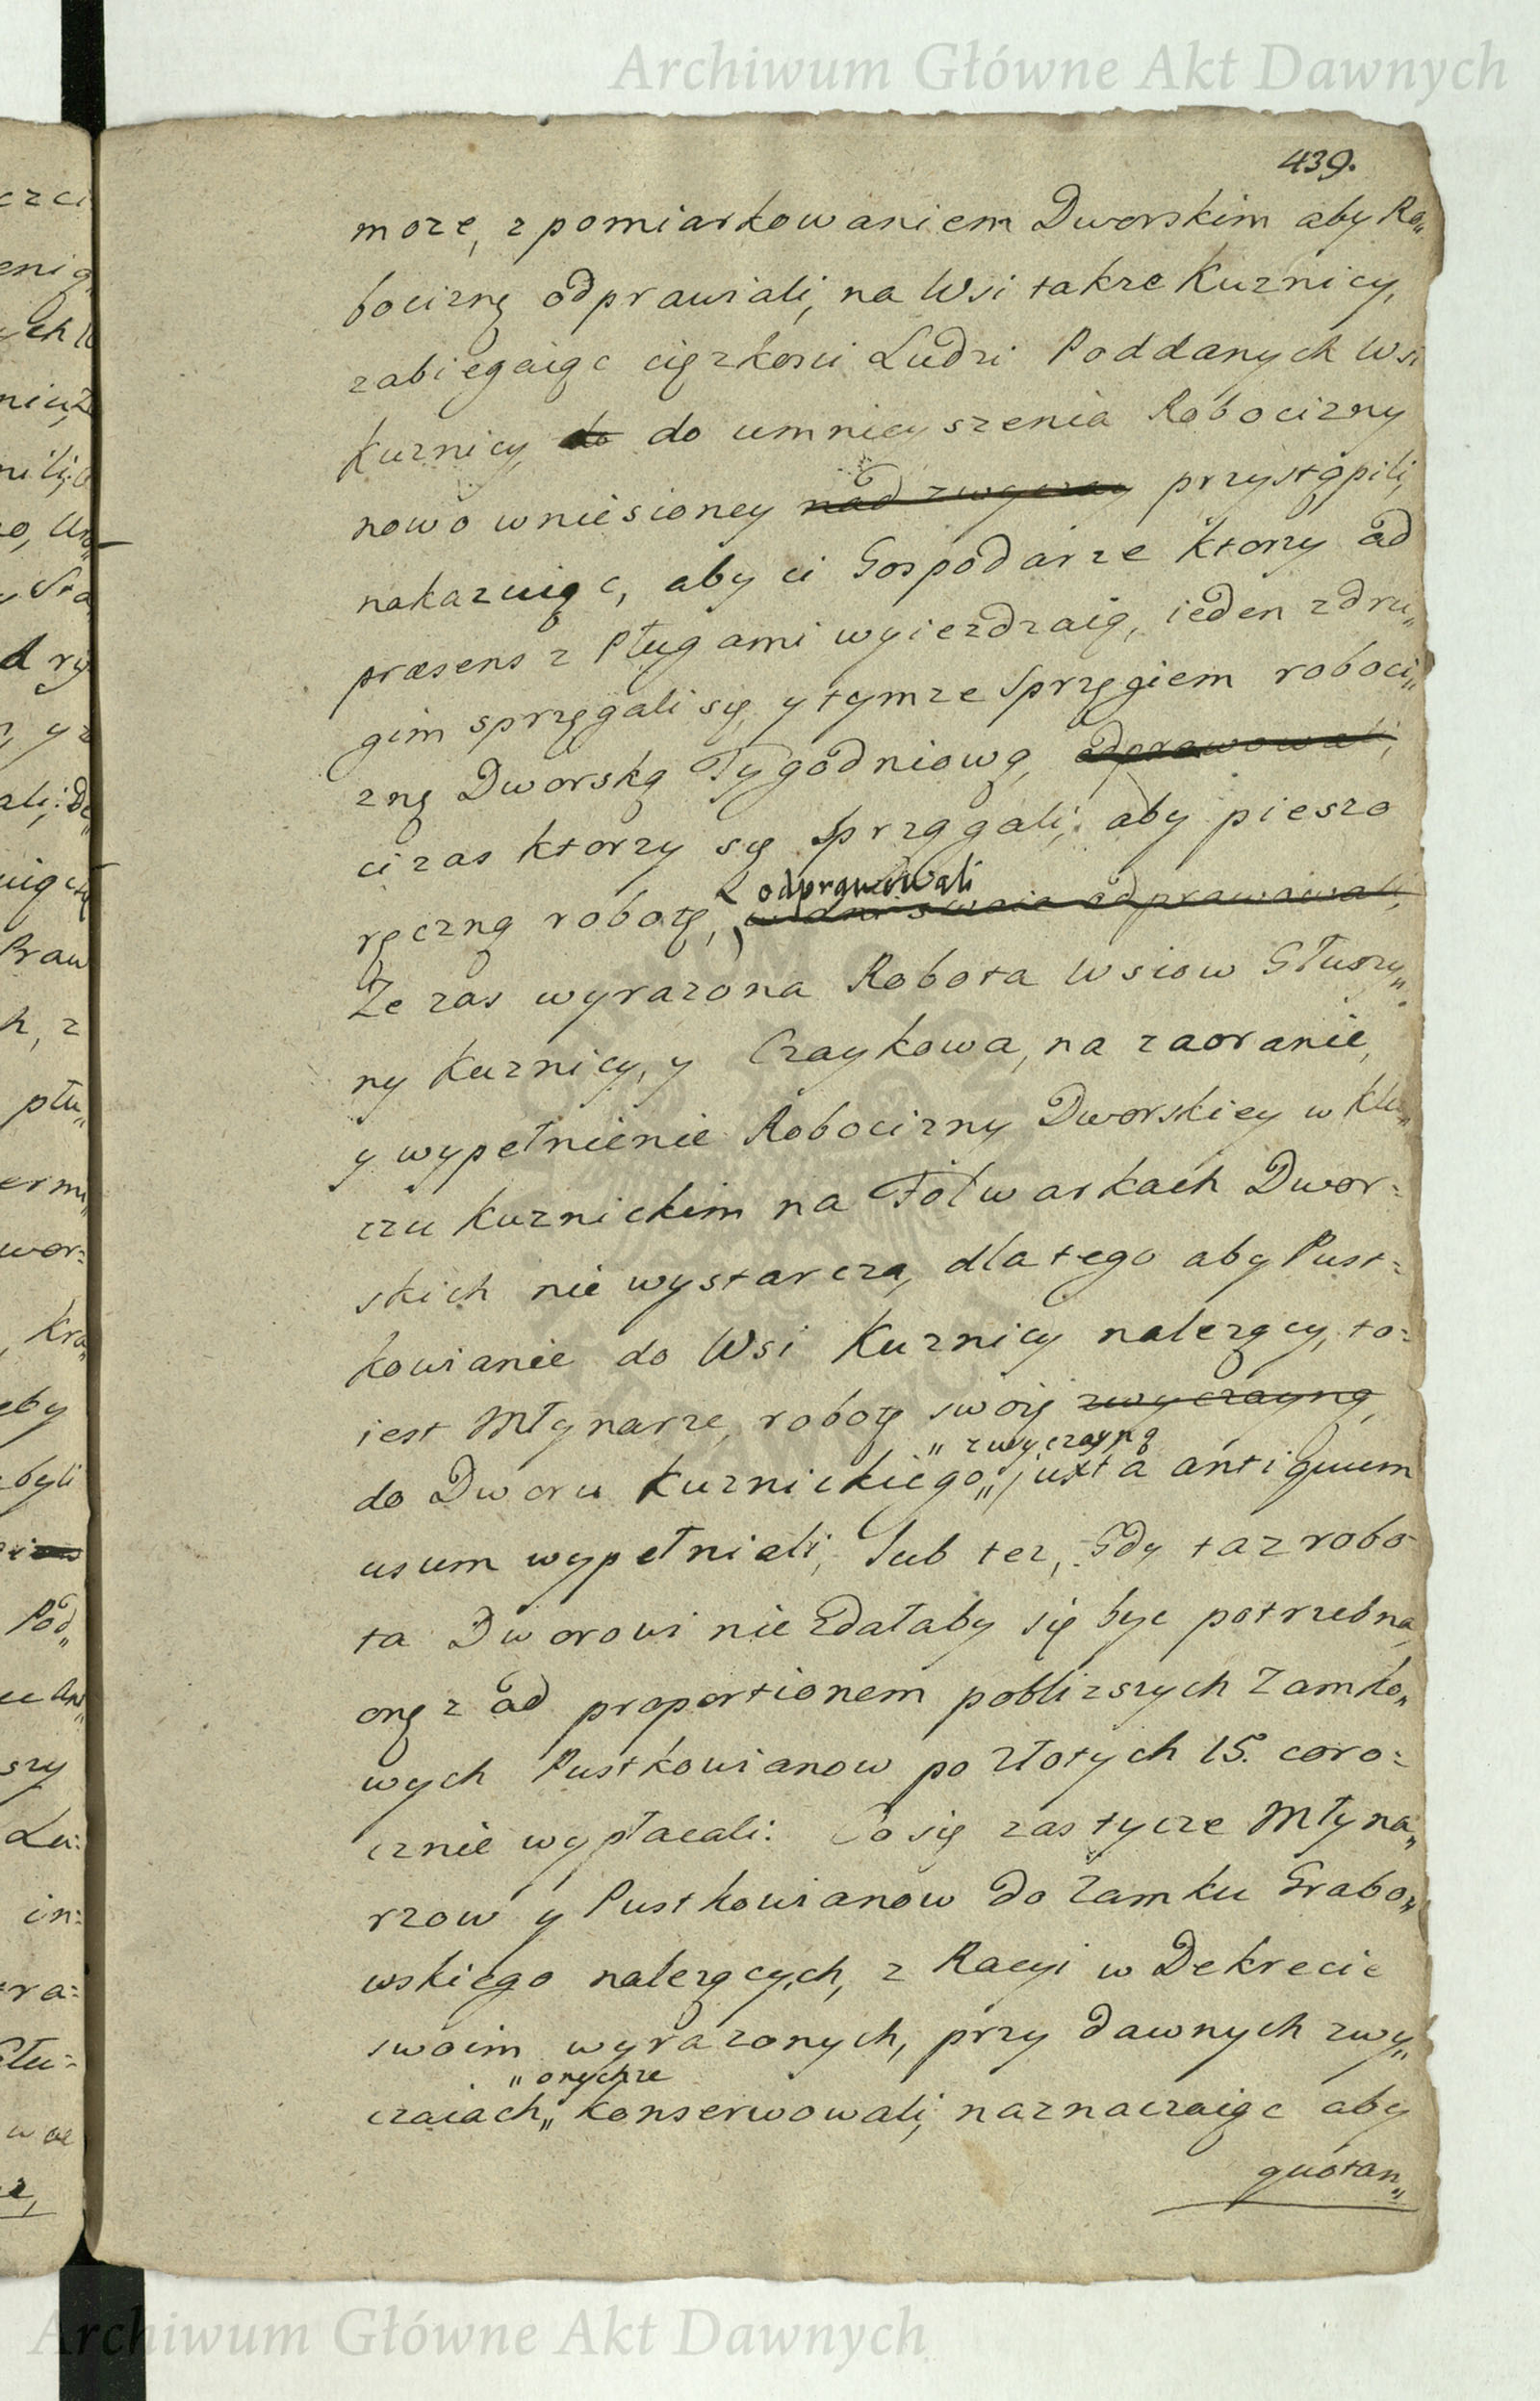 Archiwum Główne Akt Dawnych
439.
moze, z pomiarkowaniem Dworskim aby Ro„
bociznę odprawiali, na Wsi takze Kuznicy,
zabiegaiąc cięzkosci Ludzi Poddanych Wsi
Kuznicy do do umnieyszenia Robocizny
nowo wniesioney nad zwyczay przystąpili,
nakazuiąc, aby ci Gospodarze ktorzy ad
præsens z Pługami wyiezdzaią, ieden z dru„
gim sprzęgali się, y tymze Sprzęgiem roboci„
znę Dworską Tygodniową, odprawowali,
ci zas ktorzy się Sprzągali, aby pieszo
ręczną robotę, odprawowali w dni swoie odprawowali,
Ze zas wyrazona Robota Wsiow Głuszy„
ny Kuznicy, y Czaykowa, na zaoranie,
y wypełnienie Robocizny Dworskiey w Klu„
czu Kuznickim na Folwarkach Dwor=
skich nie wystarcza, dlatego aby Pust=
kowianie do Wsi Kuznicy nalezący, to=
iest Młynarze, robotę swoię zwyczayną
„ zwyczayną
do Dworu Kuznickiego„ juxta antiquum
usum wypełniali, lub tez, Gdy taz robo
ta Dworowi nie zdałaby się byc potrzebna,
onę z ad proportionem pobliszych Zamko„
wych Pustkowianow po Złotych 15. coro=
cznie wypłacali: Co się zas tycze Młyna„
rzow y Pustkowianow do Zamku Grabo„
wskiego nalezących, z Racyi w Dekrecie
swoim wyrazonych, przy dawnych zwy„
„ onychze
czaiach„ konserwowali, naznaczaiąc aby
quotan„
Archiwum Główne Akt Dawnych